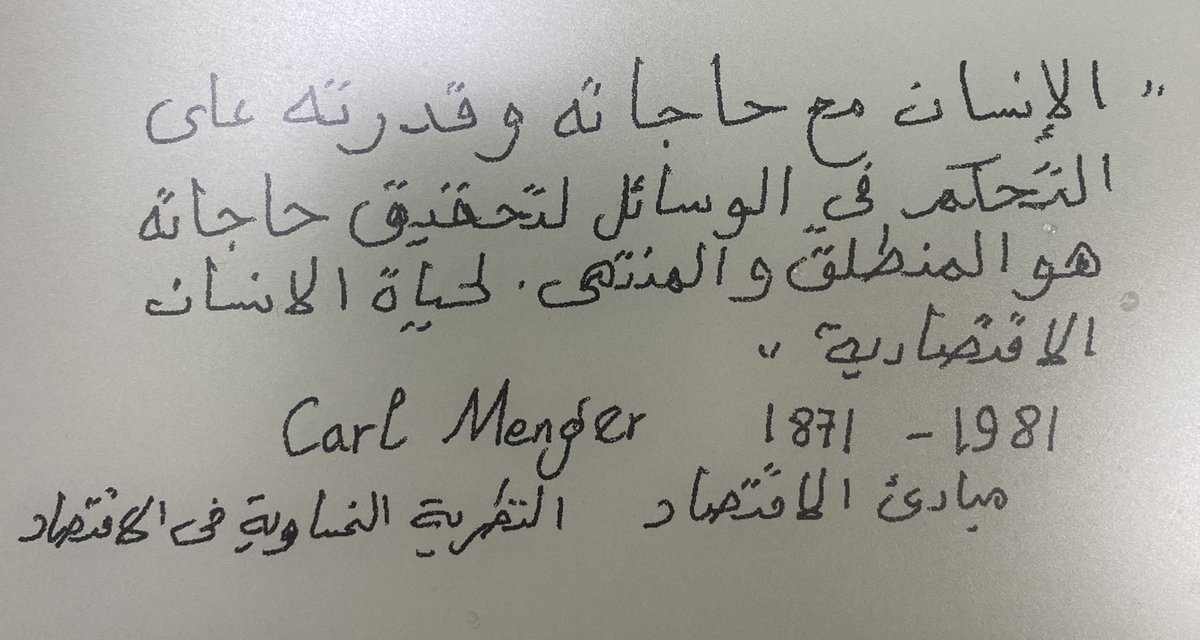 " الإنسان مع حاجاته وقدرته على
التحكم في الوسائل لتحقيق حاجاته
هو المنطلق والمنتهى. لحياة الانسان
الاقتصادية "
Carl Menger 1871 - 1981
مبادئ الاقتصاد النظرية النمساوية في الاقتصاد